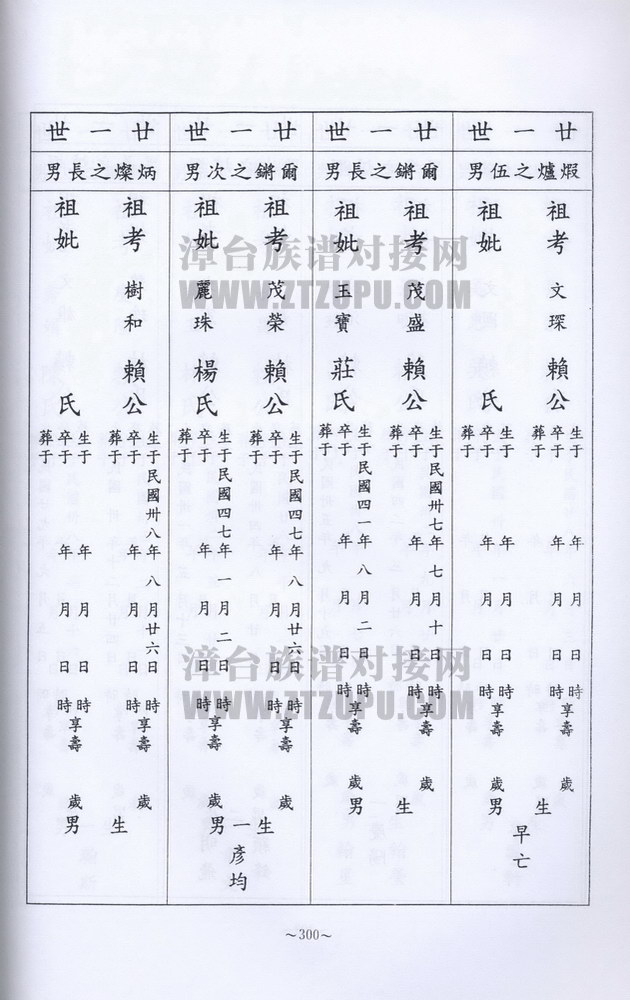 廿一世
煆爐之伍男
祖考文琛賴公
生于 年 月 日 時
卒于 年 月 日 時享壽 歲
葬于
祖妣 氏
生于 年 月 日 時
卒于 年 月 日 時享壽 歲
葬于
生 男
早亡
廿一世
爾鏘之長男
祖考茂盛賴公
生于民國卅七年七月十日時
卒于 年 月 日 時享壽 歲
葬于
祖妣玉寶莊氏
生于民國四一年八月二日時
卒于 年 月 日 時享壽 歲
葬于
生 男
廿一世
爾鏘之次男
祖考茂榮賴公
生于民國四七年八月廿六日時
卒于 年 月 日 時享壽 歲
葬于
祖妣麗珠楊氏
生于民國四七年一月二日時
卒于 年 月 日 時享壽 歲
葬于
生一男
彥均
廿一世
炳燦之長男
祖考樹和賴公
生于民國卅八年八月廿六日時
卒于 年 月 日 時享壽 歲
葬于
祖妣 氏
生于 年 月 日 時
卒于 年 月 日 時享壽 歲
葬于
生 男
～300～
漳台族谱对接网
WWW.ZTZUPU.COM
漳台族谱对接网
WWW.ZTZUPU.COM